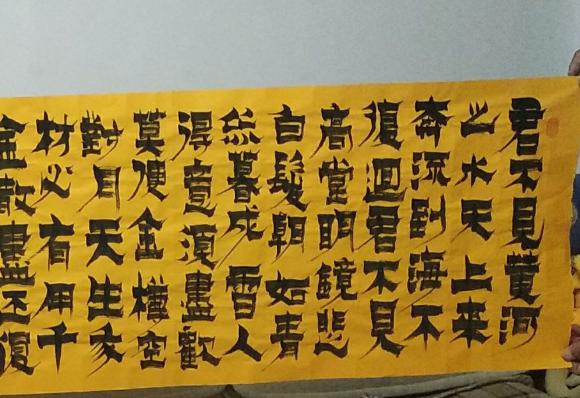 君不見黄河
之水天上来
奔流到海不
復迴君不見
高堂明鏡悲
白髮朝如青
丝暮成雪人
得意須盡歡
莫使金樽空
對月天生我
材必有用千
金散盡还復